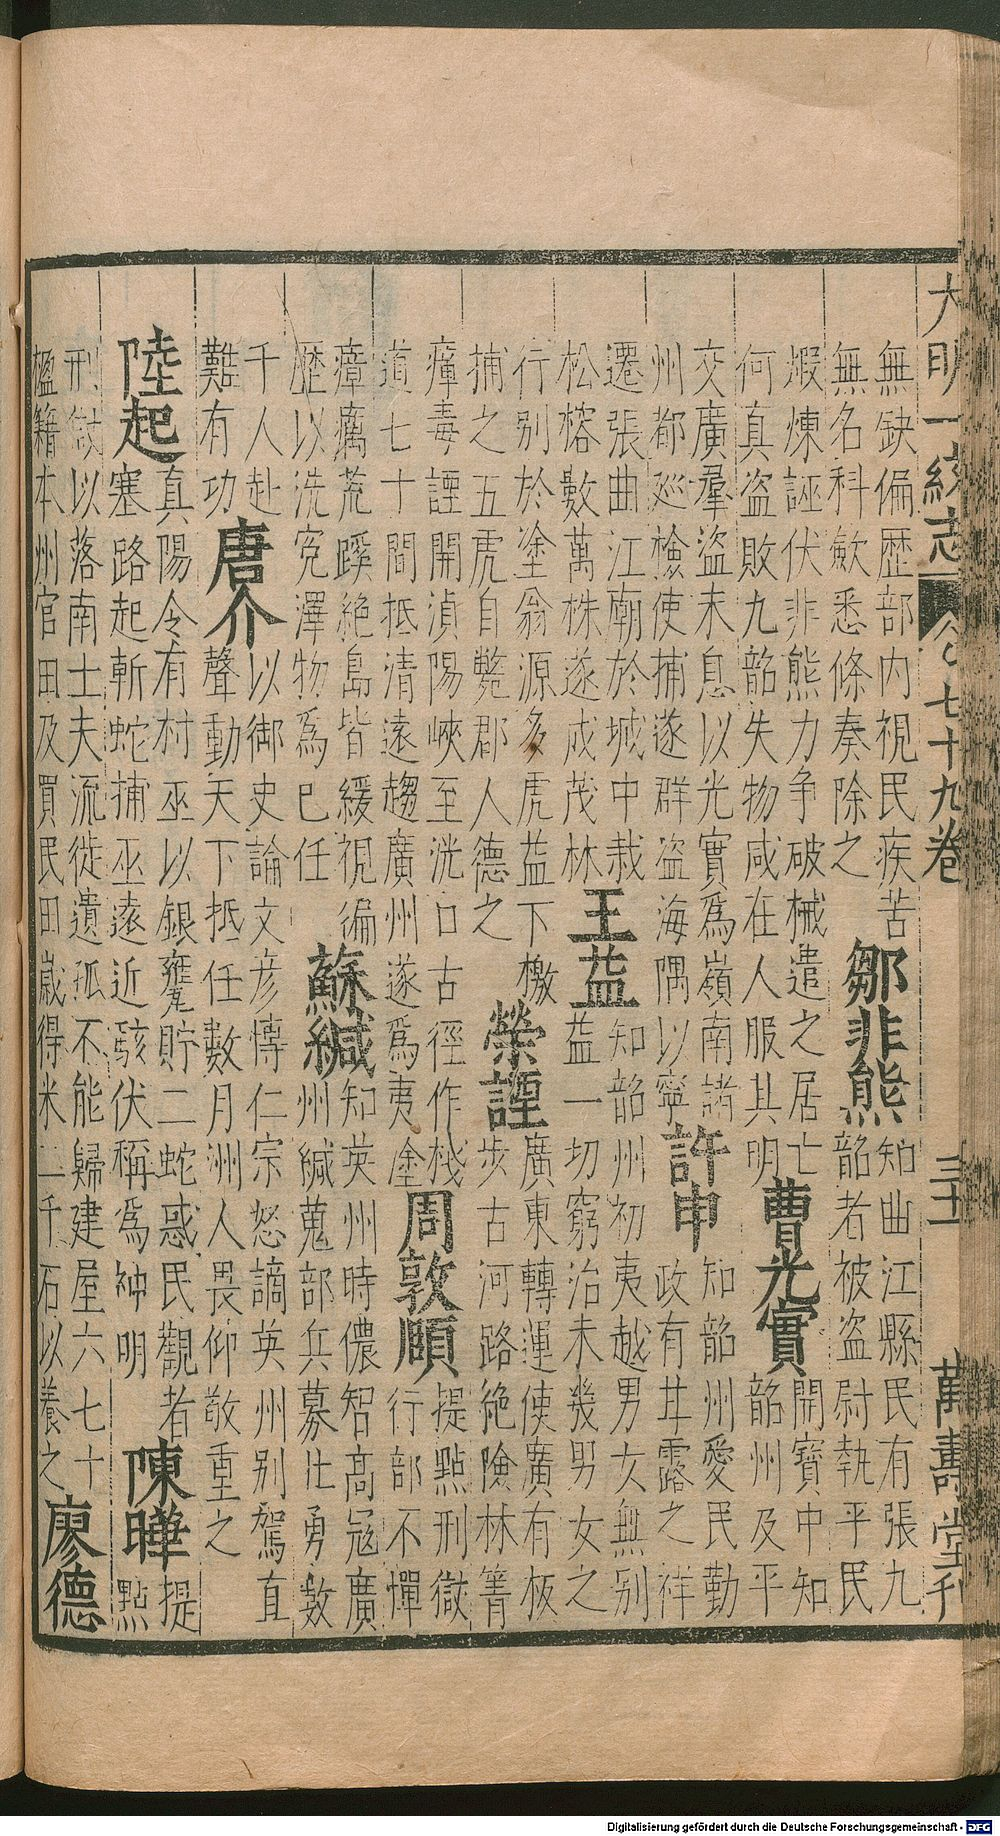 大明一統志
七十九卷
三十一
萬壽堂刊
無缺偏歷部內視民疾苦
無名科歛悉條奏除之
鄒非熊
知曲江縣民有張九
韶者被盜尉執平民
煆煉誣伏非熊力争破械遣之居亡
何真盜敗九韶失物咸在人服其明
曹光實
開寶中知
韶州及平
交廣羣盜未息以光實為嶺南諸
州都廵檢使捕遂群盜海隅以寧
許申
知韶州愛民勤
政有甘露之祥
遷張曲江廟於城中栽
松榕數萬株遂成茂林
王益
知韶州初夷越男女無别
益一切窮治未幾男女之
行别於塗翁源多虎益下檄
捕之五虎自斃郡人德之
榮諲
廣東轉運使廣有板
步古河路絶險林箐
瘴毒諲開湞陽峽至洸口古徑作棧
道七十間抵清遠趨廣州遂為夷塗
周敦頤
提點刑獄
行部不憚
瘴癘荒蹊絶島皆緩視徧
歷以洗冤澤物為己任
蘇緘
知英州時儂智髙冦廣
州緘蒐部兵募壯勇數
千人赴
難有功
唐介
以御史論文彦博仁宗怒謫英州别駕直
聲動天下抵任數月洲人畏仰敬重之
陸起
真陽令有村巫以銀甕貯二蛇惑民觀者
塞路起斬蛇捕巫遠近駭伏稱為神明
陳曄
提
點
刑獄以落南士夫流徙遺孤不能歸建屋六七十
楹籍本州官田及買民田歲得米二千石以養之
廖德
Digitalisierung gefördert durch die Deutsche Forschungsgemeinschaft - DFG